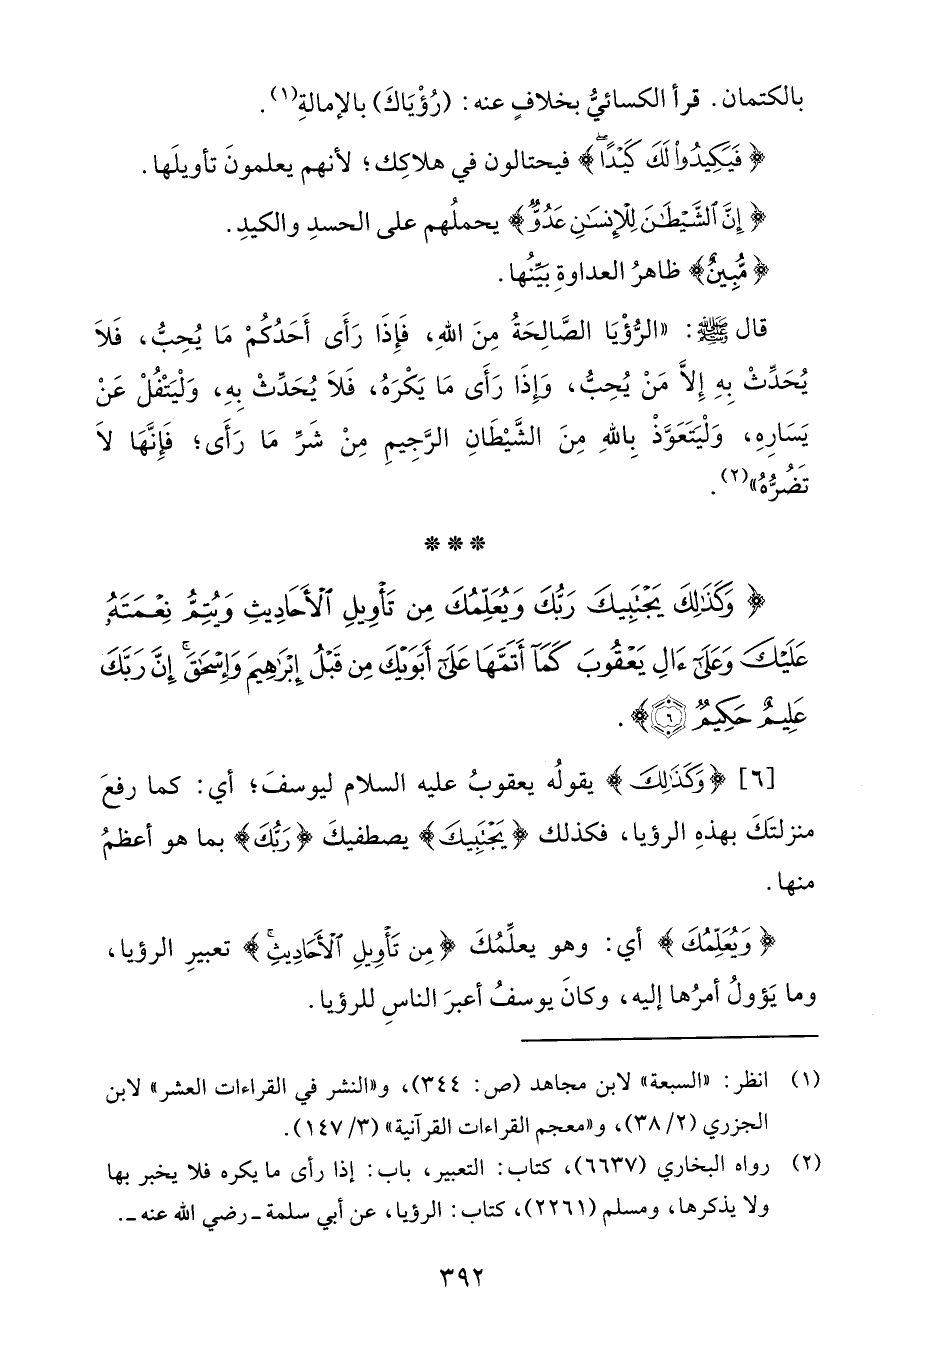 بالكتمان. قرأ الكسائيُّ بخلافٍ عنه: (رُؤْيَاكَ) بالإمالةِ(١).
﴿فَيَكِيدُوا۟ لَكَ كَيْدًا ۖ﴾ فيحتالون في هلاكِك؛ لأنهم يعلمونَ تأويلَها.
﴿إِنَّ ٱلشَّيْطَٰنَ لِلْإِنسَٰنِ عَدُوٌّ﴾ يحملُهم على الحسدِ والكيدِ.
﴿مُّبِينٌ﴾ ظاهرُ العداوةِ بَيِّنُها.
قال ﷺ: «الرُّؤْيَا الصَّالِحَةُ مِنَ اللهِ، فَإِذَا رَأَى أَحَدُكُمْ مَا يُحِبُّ، فَلاَ
يُحَدِّثْ بِهِ إِلاَّ مَنْ يُحِبُّ، وَإِذَا رَأَى مَا يَكْرَهُ، فَلاَ يُحَدِّثْ بِهِ، وَلْيَتْفُلْ عَنْ
يَسَارِهِ، وَلْيَتَعَوَّذْ بِاللهِ مِنَ الشَّيْطَانِ الرَّجِيمِ مِنْ شَرِّ مَا رَأَى؛ فَإِنَّهَا لاَ
تَضُرُّهُ»(٢).
* * *
﴿وَكَذَٰلِكَ يَجْتَبِيكَ رَبُّكَ وَيُعَلِّمُكَ مِن تَأْوِيلِ ٱلْأَحَادِيثِ وَيُتِمُّ نِعْمَتَهُۥ
عَلَيْكَ وَعَلَىٰٓ ءَالِ يَعْقُوبَ كَمَآ أَتَمَّهَا عَلَىٰٓ أَبَوَيْكَ مِن قَبْلُ إِبْرَٰهِيمَ وَإِسْحَٰقَ ۚ إِنَّ رَبَّكَ
عَلِيمٌ حَكِيمٌ ٦﴾.
[٦] ﴿وَكَذَٰلِكَ﴾ يقولُه يعقوبُ عليه السلام ليوسفَ؛ أي: كما رفعَ
منزلتَكَ بهذهِ الرؤيا، فكذلك ﴿يَجْتَبِيكَ﴾ يصطفيكَ ﴿رَبُّكَ﴾ بما هو أعظمُ
منها.
﴿وَيُعَلِّمُكَ﴾ أي: وهو يعلِّمُكَ ﴿مِن تَأْوِيلِ ٱلْأَحَادِيثِ ۚ﴾ تعبيرِ الرؤيا،
وما يَؤولُ أمرُها إليه، وكانَ يوسفُ أعبرَ الناسِ للرؤيا.
(١) انظر: «السبعة» لابن مجاهد (ص: ٣٤٤)، و«النشر في القراءات العشر» لابن
الجزري (٢/ ٣٨)، و«معجم القراءات القرآنية» (٣/ ١٤٧).
(٢) رواه البخاري (٦٦٣٧)، كتاب: التعبير، باب: إذا رأى ما يكره فلا يخبر بها
ولا يذكرها، ومسلم (٢٢٦١)، كتاب: الرؤيا، عن أبي سلمة ـ رضي الله عنه ـ.
٣٩٢